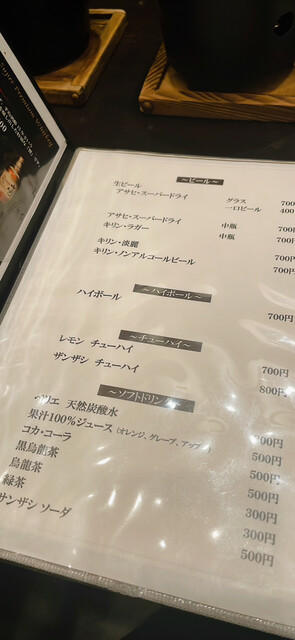 Enjoy Premium Whisky
～ビール～
生ビール
アサヒ・スーパードライ グラス 700
一口ビール 400
アサヒ・スーパードライ 中瓶 700円
キリン・ラガー 中瓶 700円
キリン・淡麗 700円
キリン・ノンアルコールビール 700円
～ハイボール～
ハイボール 700円
～チューハイ～
レモン チューハイ 700円
サンザシ チューハイ 800円
～ソフトドリンク
ペリエ 天然炭酸水
果汁100％ジュース (オレンジ、グレープ、アップ 500円
コカ・コーラ 500円
黒烏龍茶 500円
烏龍茶 300円
緑茶 300円
サンザシ ソーダ 500円